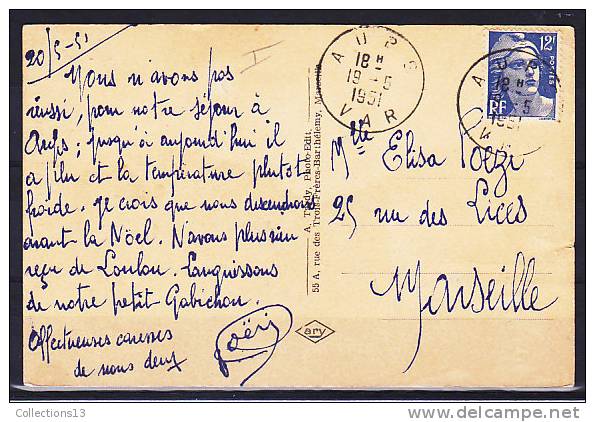 20/5-51
Nous n'avons pas
réussi, pour notre séjour à
Aups; jusqu'à aujourd'hui il
a plu et la température plutôt
froide. Je crois que nous descendrons
avant la Nöel. N'avons plus rien
reçu de Loulou. Languissons
de notre petit Gabichou.
Affectueuses caresses
de nous deux
AUPS
18H
19-5
1951
VAR
12F
POSTES
RF
AUPS
18H
1951
Mlle Elisa
25 rue des Lices
Marseille
A. Tardy, Photo-Edit.
55 A, rue des Trois-Frères-Barthélemy, Marseille
ary
Collections13
www.delcampe.net